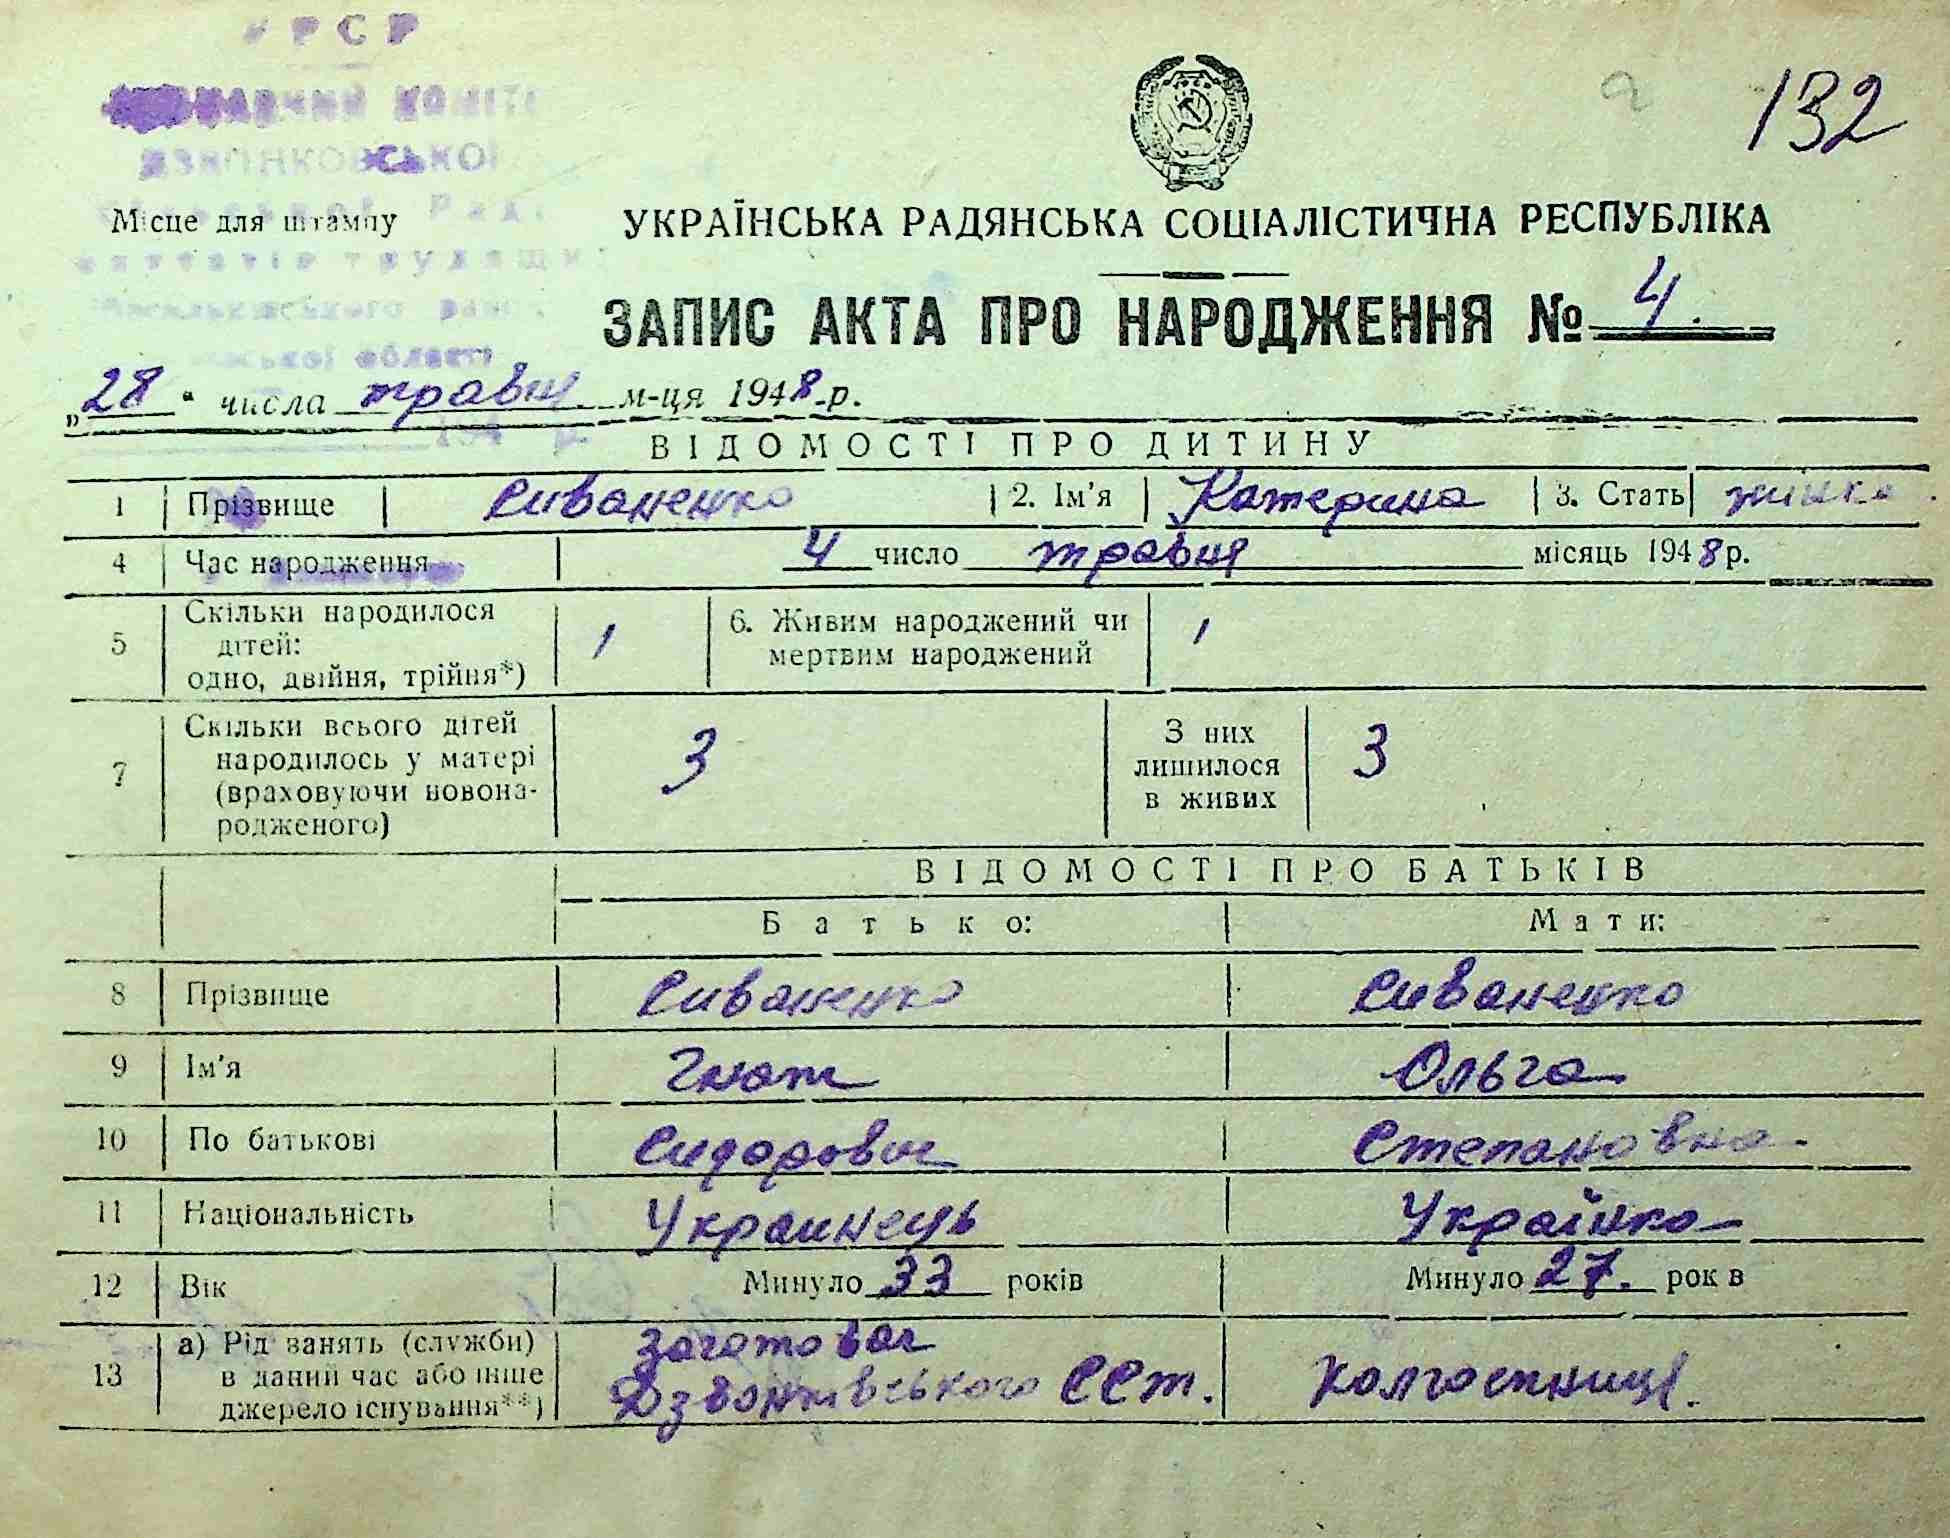 УРСР
132
ДЗВІНКОВСЬКОЇ
Місце для штампу
УКРАЇНСЬКА РАДЯНСЬКА СОЦІАЛІСТИЧНА РЕСПУБЛІКА
Васильківського
області
ЗАПИС АКТА ПРО НАРОДЖЕННЯ № 4.
„28" числа травня м-ця 1948 р.
194 р.
ВІДОМОСТІ ПРО ДИТИНУ
1 Прізвище Сиваненко 2. Ім'я Катерина 3. Стать жінка
4 Час народження 4 число травня місяць 1948 р.
5 Скільки народилося дітей: одно, двійня, трійня*) 1 6. Живим народжений чи мертвим народжений 1
7 Скільки всього дітей народилось у матері (враховуючи новонародженого) 3 З них лишилося в живих 3
ВІДОМОСТІ ПРО БАТЬКІВ
Батько: Мати:
8 Прізвище Сиваненко Сиваненко
9 Ім'я Гнат Ольга
10 По батькові Сидорович Степановна
11 Національність Украинець Українка
12 Вік Минуло 33 років Минуло 27. рок в
13 а) Рід занять (служби) в даний час або інше джерело існування**) Заготовач Дзвонківського ССт. Колгоспниця.